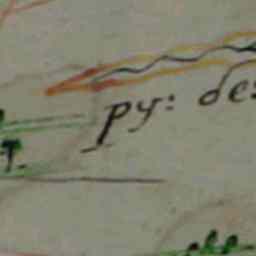 py: de
T